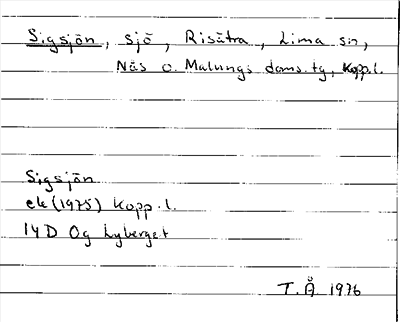 Sigsjön, sjö, Risätra, Lima sn,
Näs o. Malungs doms.tg, Kopp.l.
Sigsjön
ek (1975) Kopp.l.
14D Og Lyberget
T.Å 1976